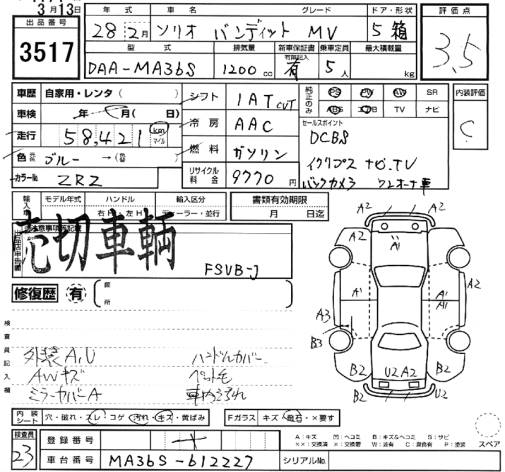 3月13日
出品番号 3517
年式 車名 グレード ドア・形状
28年2月 ソリオ バンディット MV 5 箱
型式 排気量 新車保証書 乗車定員 最大積載量
DAA-MA36S 1200cc 有 5人 kg
評価点
3.5
車歴 自家用・レンタ( )
車検 年 月( 日)
走行 58,421 km マイル
色 ブルー →(色 )
カラーNo ZRZ
シフト IAT CVT
冷房 AAC
燃料 ガソリン
リサイクル料金 9770円
純正のみ PS PW AW SR
ABS エアB TV ナビ
セールスポイント
DCBS
イクリプス ナビ.TV
バックカメラ ワンオーナ車
内装評価
C
輸入車 モデル年式 ハンドル 輸入区分
年 右H・左H ディーラー・並行
書類有効期限
月 日迄
売切車輌
FSVB-J
修復歴 有 箇所
検査員記入欄
外装A,U ハンドルカバー
AWキズ ペット毛
ミラーカバーA
A2 A2 A1 A2 A2
A1 A1 A3 B3
B2 U2 A2 B2 U2
内装シート 穴・破れ・スレ・コゲ 汚れ・キズ・黄ばみ Fガラス キズ・飛石・×要す
検査員 23
登録番号
車台番号 MA36S-612227 シリアルNo.
A:キズ U:ヘコミ B:キズ&ヘコミ S:サビ
スペア